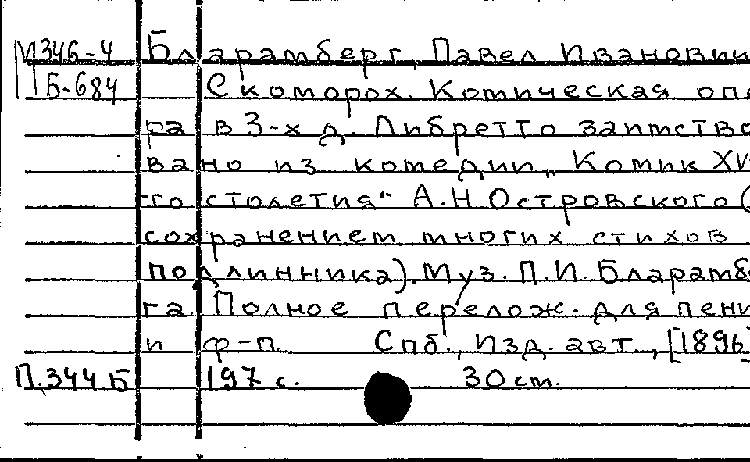 М346-4 Бларамберг, Павел Иванович
Б-684 Скоморох. Комическая опе
ра в 3-х д. Либретто заимство
вано из комедии „Комик XV
го столетия“ А.Н Островского (
сохранением многих стихов
подлинника). Муз. П.И. Бларамбе
га Полное перелож. для пени
и ф-п. Спб., Изд. авт., [1896]
П.344Б 197 с. 30 cm.